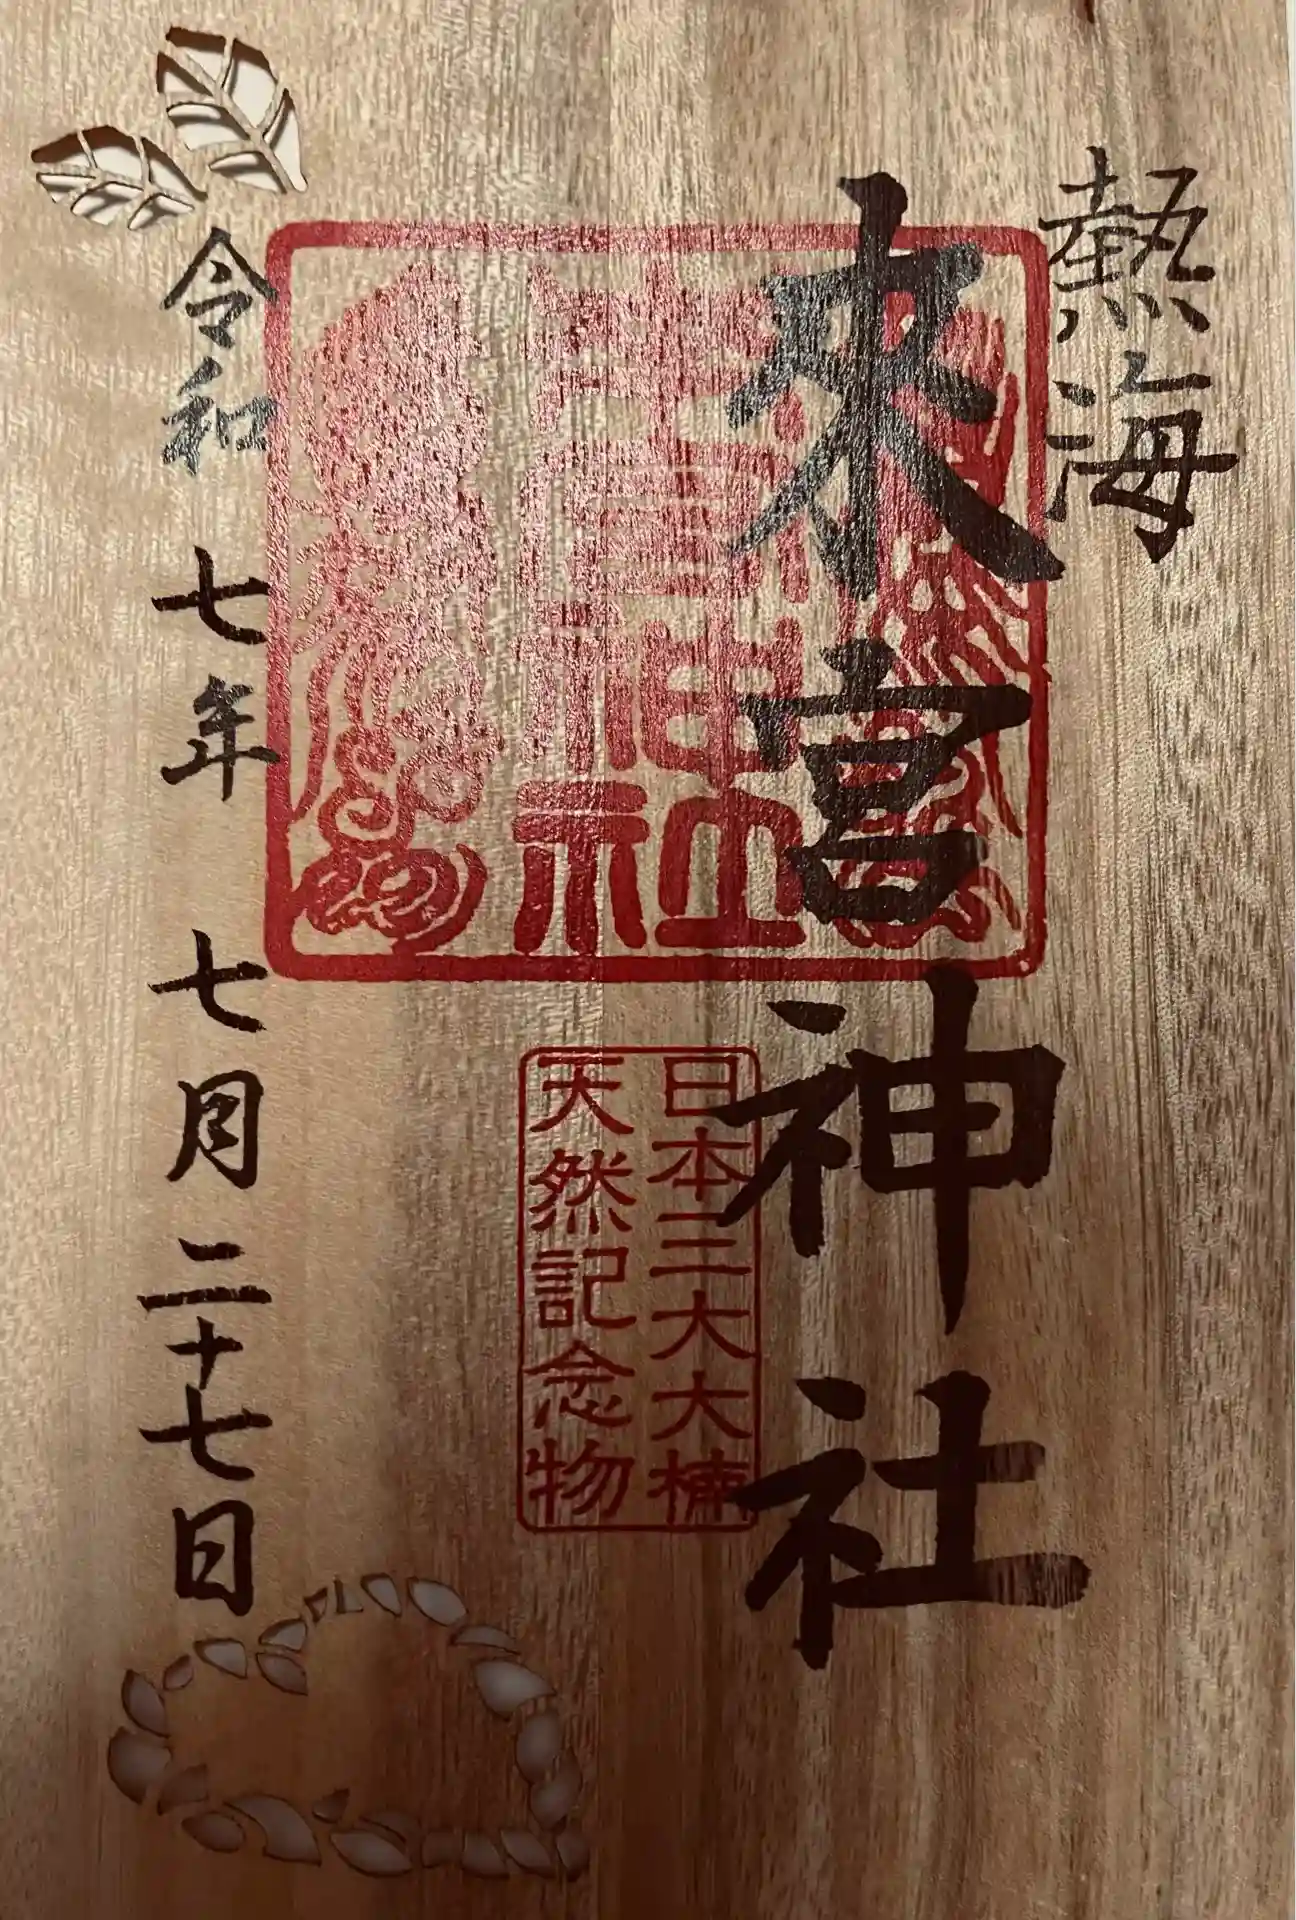 熱海
來宮神社
來宮神社
日本三大大楠
天然記念物
令和七年七月二十七日